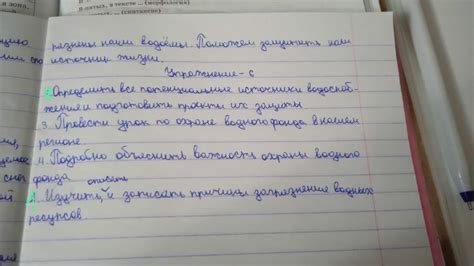 в-пятых, в тексте ... (морфология)
(синтаксис)
резнены наши водоёмы. Поможем защитить наш
источник жизни.
Упражнение-6
2. Определить все потенциальные источники водоснаб-
жения и подготовить проекты их защиты
3. Провести урок по охране водного фонда в нашем
регионе.
4. Подробно объяснить важность охраны водного
фонда
описать
1. Изучить, и записать причины загрязнение водных
ресурсов.